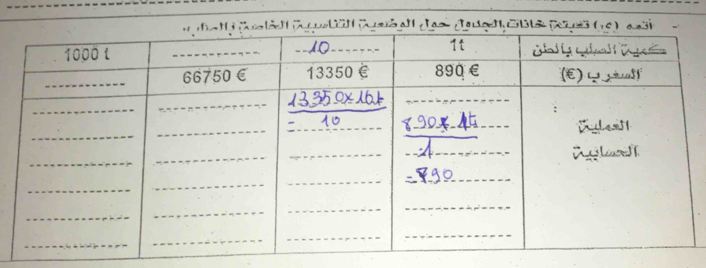 - أتمم (ي) تعبئة خانات الجدول حول الوضعية التناسبية الخاصة بالصلب.
كمية الصلب بالطن 1t 10 1000 t
السعر ب (€) 890 € 13350 € 66750 €
العملية
الحسابية
13350x1t
= 10
890x 1t
1
= 890